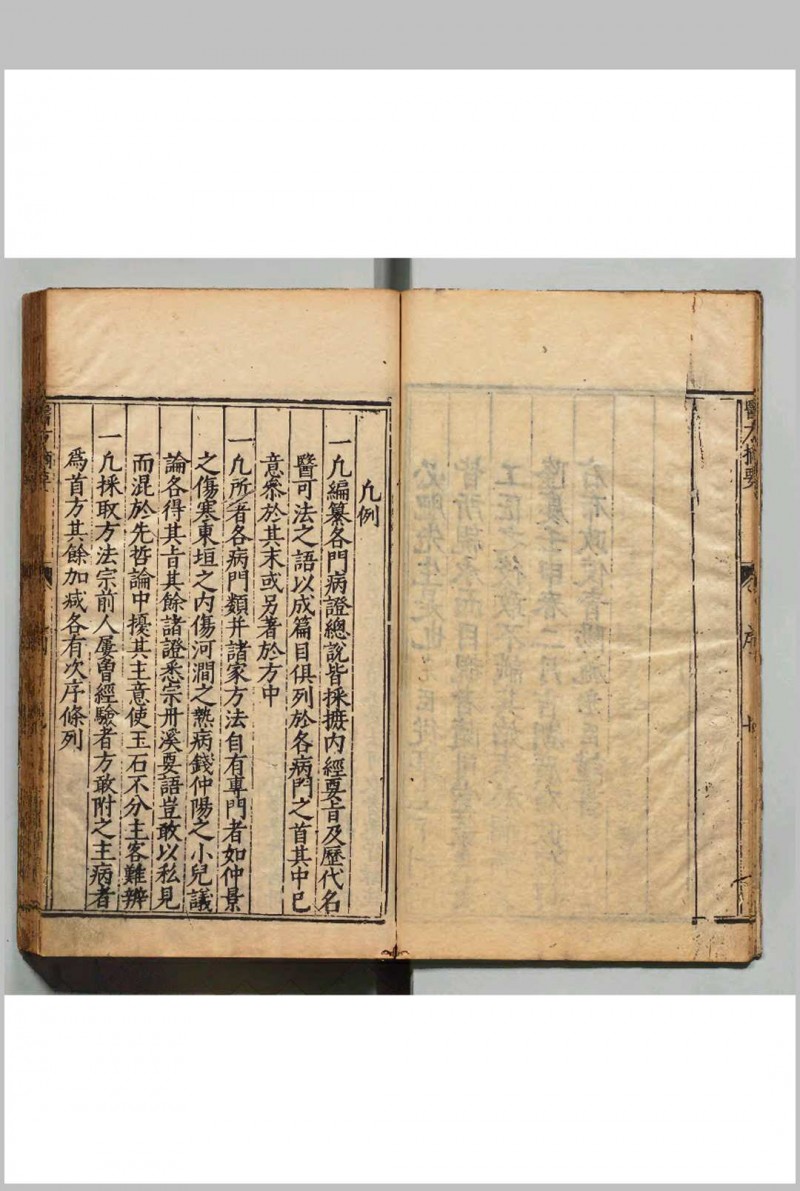 醫方摘要
序
凡例
一凡編纂各門病證總說皆採摭内經要旨及歷代名
醫可法之語以成篇目俱列於各病門之首其中已
意叅於其末或另著於方中
一凡所著各病門類并諸家方法自有專門者如仲景
之傷寒東垣之内傷河澗之熱病錢仲陽之小兒議
論各得其旨其餘諸證悉宗丹溪要語豈敢以私見
而混於先哲論中擾其主意使玉石不分主客難辨
一凡採取方法宗前人屢曾經驗者方敢附之主病者
爲首方其餘加减各有次序條列
醫方摘要